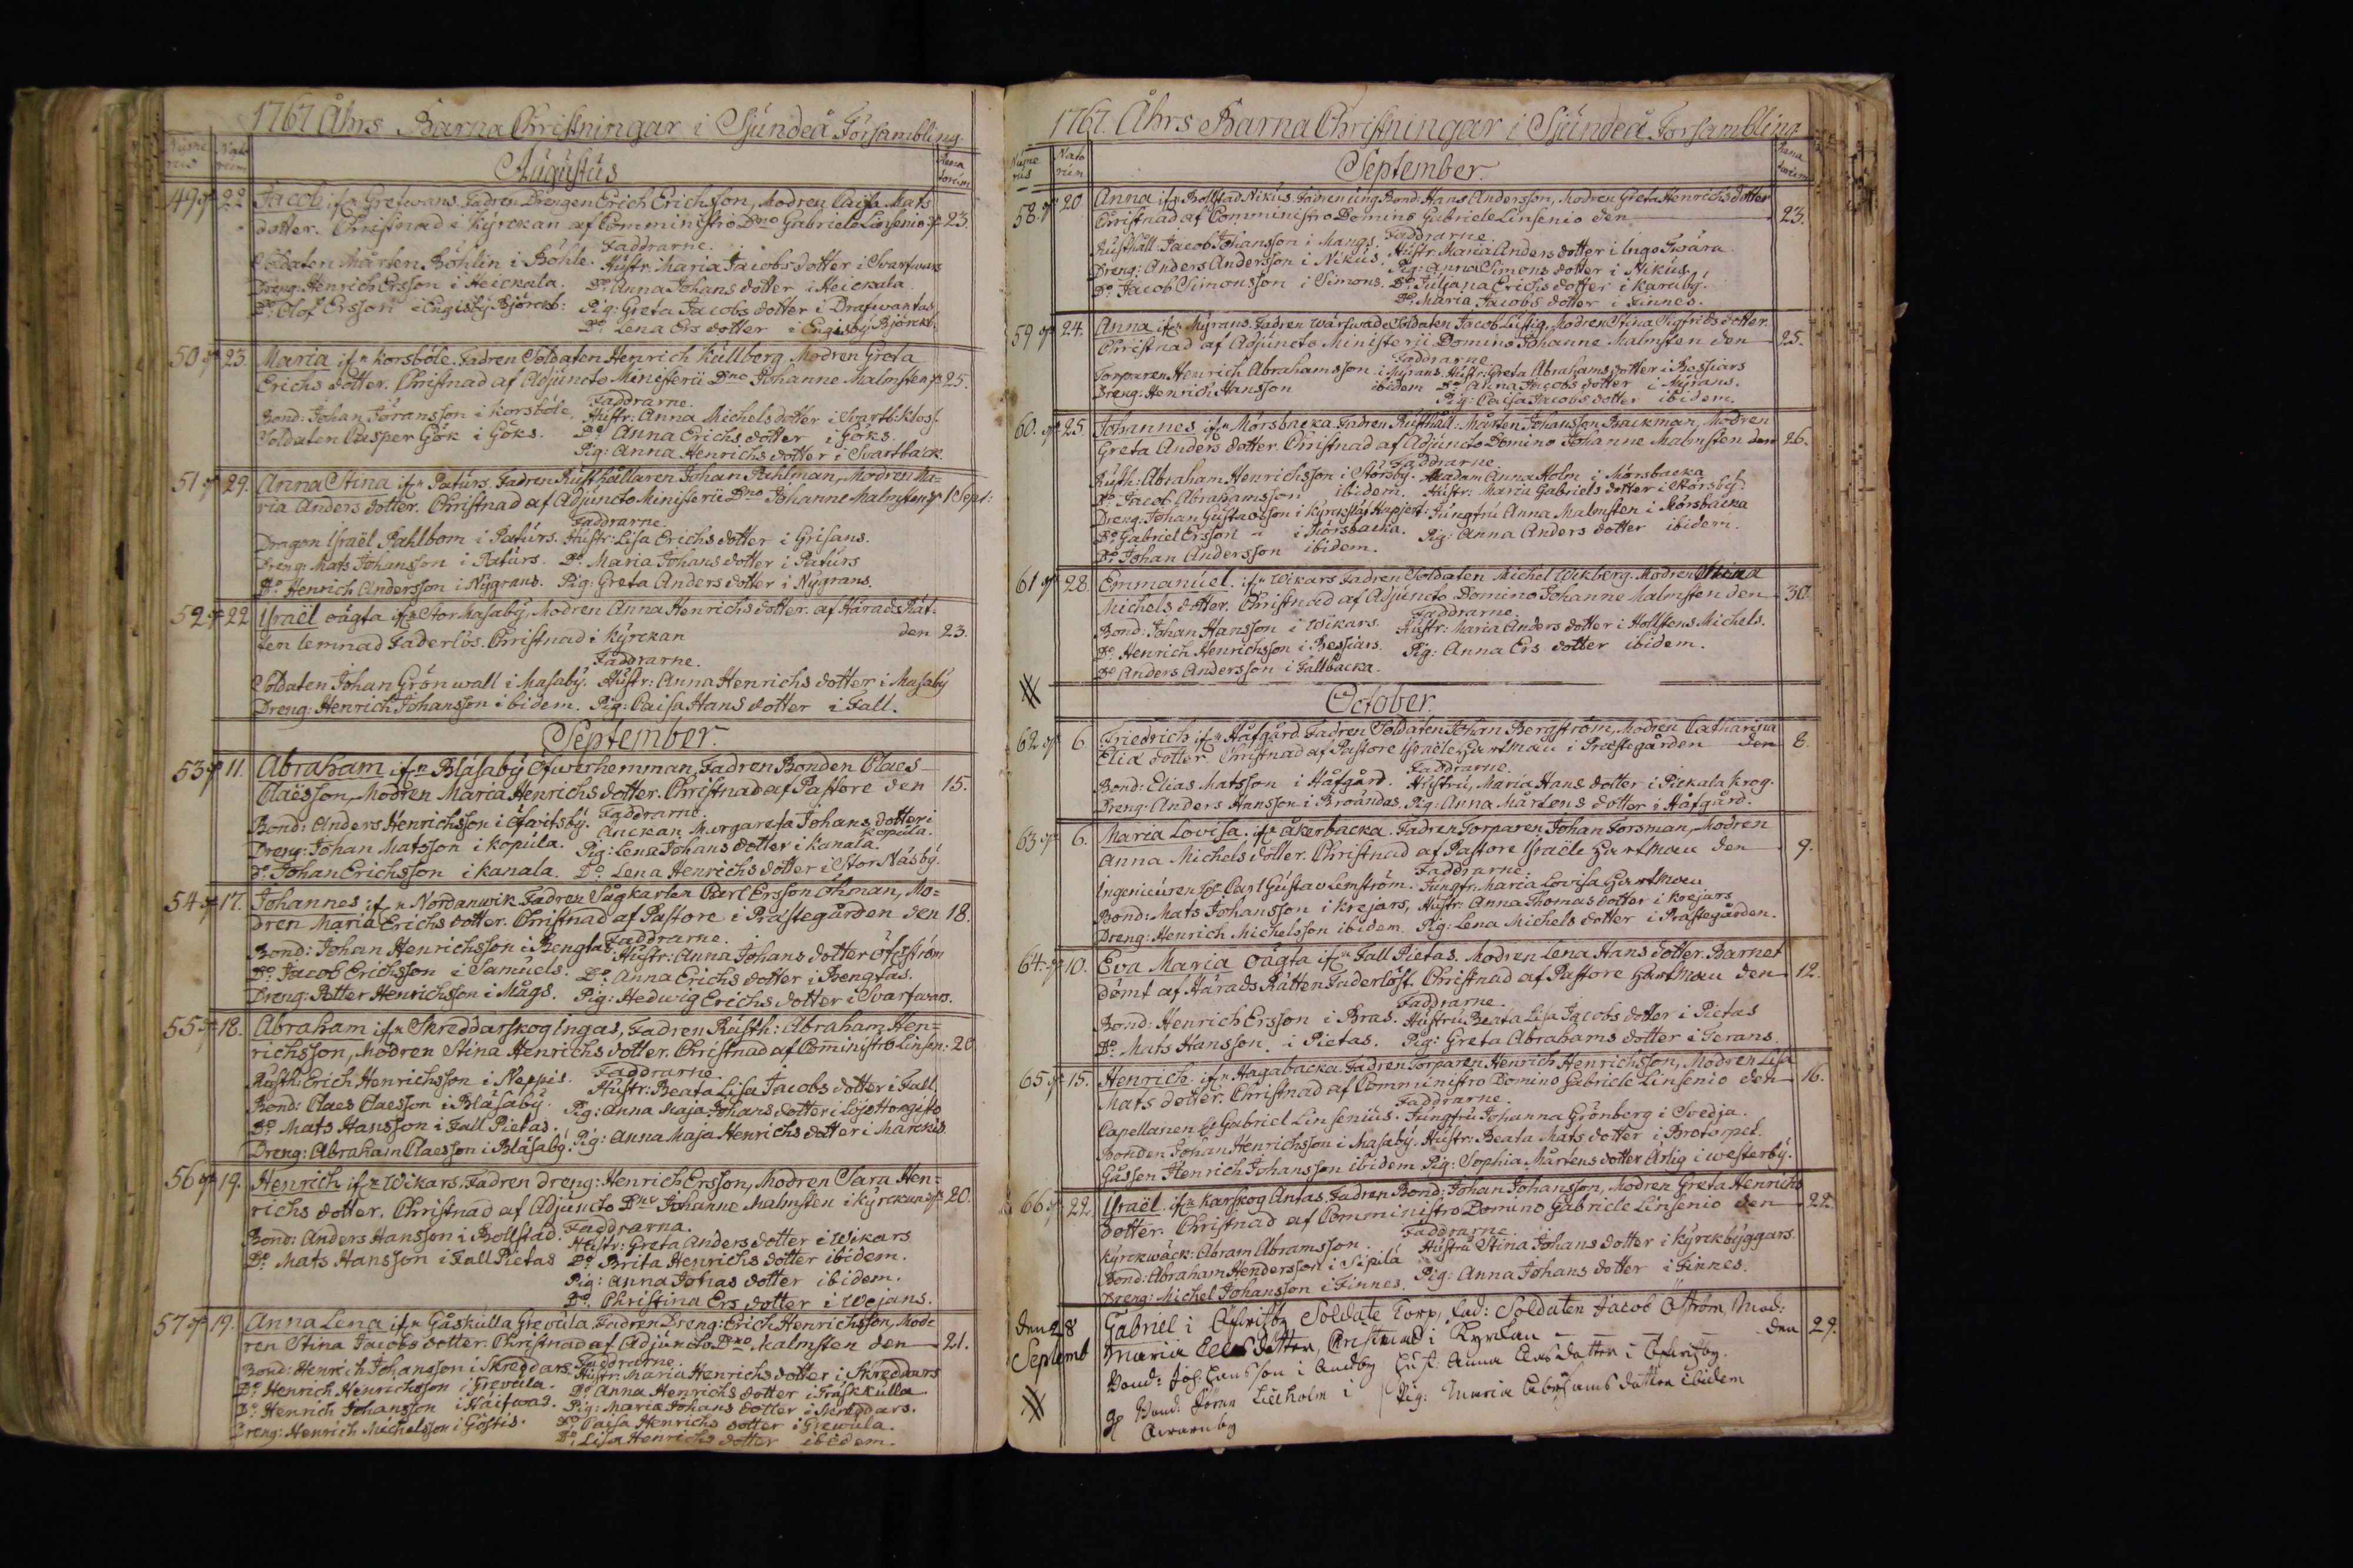 1767 Åhrs Barna Christningar i Sjundeå Försambling
Nume rus
Nato rum
Rena torum
Augustus
49 22 Jacob ifrn Grefwans. Fadren Drengen Erich Erichsson, Modren Caisa Mats
dotter. Christnad i Kyrckan af Comministro Dno Gabriele Linsenio 23.
Faddrarne.
Soldaten Mårten Böhlin i Böhle. Hustr: Maria Jacobs dotter i Svartwars
Dreng: Henrich Ersson i Heickala. Do Anna Johans dotter i Heickala.
Do Olof Ersson i Engisby Björckb: Pig: Greta Jacobs dotter i Drafwantas
Do Lena Ers dotter i Engisby Björckb:
50 23. Maria ifrn Korsböle. Fadren Soldaten Henrich Kullberg Modren Greta
Erichs dotter. Christnad af Adjuncto Ministerii Dno Johanne Malmsten 25.
Faddrarne.
Bond: Johan Joransson i Korsböle. Hustr: Anna Michels dotter i Svartb: Klosf.
Soldaten Casper Gök i Göks. Do Anna Erichs dotter i Göks.
Pig: Anna Henrichs dotter i Svartback.
51 29. Anna Stina ifrn Paturs. Fadren Rusthållaren Johan Rahlman, Modren Ma=
ria Anders dotter. Christnad af Adjuncto Ministerii Dno Johanne Malmsten 1 Sept:
Faddrarne.
Dragon Israël Rahlbom i Paturs. Hustr: Lisa Erichs dotter i Grisans.
Dreng: Mats Johansson i Paturs. Do Maria Johans dotter i Paturs
Do Henrich Andersson i Nygrans. Pig: Greta Anders dotter i Nygrans.
52 22 Israël oägta ifrn Stor Masaby, Modren Anna Henrichs dotter. af Härads Rät-
ten lemnad Faderlös. Christnad i Kyrckan den 23.
Faddrarne.
Soldaten Johan Grönwall i Masaby. Hustr: Anna Henrichs dotter i Masaby
Dreng: Henrich Johansson ibidem. Pig: Caisa Hans dotter i Fall.
September.
53 11. Abraham ifrn Blåsaby Öfwerhemman, Fadren Bonden Claes
Claësson, Modren Maria Henrichs dotter. Christnad af Pastore den 15.
Faddrarne.
Bond: Anders Henrichsson i Öfwitsby. Anckan Margareta Johans dotter i
Kopula.
Dreng: Johan Matsson i Kopula. Pig: Lena Johans dotter i Kanala.
Do Johan Erichsson i Kanala. Do Lena Henrichs dotter i Stor Näsby.
54 17. Johannes ifrn Nordanwik Fadren Sågkarlen Carl Ersson Öhman, Mo=
dren Maria Erichs dotter. Christnad af Pastore i Præstegården den 18.
Faddrarne.
Bond: Johan Henrichsson i Bengtas. Hustr: Anna Johans dotter Öfström
Do Jacob Erichsson i Samuels. Do Anna Erichs dotter i Bengtas.
Dreng: Petter Henrichsson i Mågs. Pig: Hedwig Erichs dotter i Svartwars.
55 18. Abraham ifrn Skreddarskog Ingas, Fadren Rusth: Abraham Hen=
richsson, Modren Stina Henrichs dotter. Christnad af Cõministro Linsen: 20
Faddrarne.
Rusth: Erich Henrichsson i Neppis. Hustr: Beata Lisa Jacobs dotter i Fall.
Bond: Claes Claesson i Blåsaby. Pig: Anna Maja Johans dotter i Löjo Hongisto
Do Mats Hansson i Fall Pietas. Pig: Anna Maja Henrichs dotter i Marckus.
Dreng: Abraham Claesson i Blåsaby.
56 19. Henrich ifrn Wikars. Fadren dreng: Henrich Ersson, Modren Sara Hen=
richs dotter. Christnad af Adjuncto Dno Johanne Malmsten i Kyrckan 20.
Faddrarna.
Bond: Anders Hansson i Bollstad. Hustr: Greta Anders dotter i Wikars
Do Mats Hansson i Fall Pietas Do Brita Henrichs dotter ibidem.
Pig: Anna Johas dotter ibidem.
Do Christina Ers dotter i Wejans.
57 19. Anna Lena ifrn Gåskulla Grevula. Fadren Dreng: Erich Henrichsson, Mod:
ren Stina Jacobs dotter. Christnad af Adjuncto Dno Malmsten den 21.
Faddrarne.
Bond: Henrich Johansson i Skreddars. Hustr: Maria Henrichs dotter i Skreddars
Do Henrich Henrichsson i Grevula. Do Anna Henrichs dotter i Träskkulla
Do Henrich Johansson i Haifwas. Pig: Maria Johans dotter i Skreddars.
Dreng: Henrich Michelsson i Göstis. Do Caisa Henrichs dotter i Grewula.
Do Lisa Henrichs dotter ibidem.
1767. Åhrs Barna Christningar i Sjundeå Forsambling
Nume rus
Nato rum
Rena torum
September.
58. 20 Anna ifrn Bollstad Nikus. Fadren ung Bond: Hans Andersson, Modren Greta Henrichs dotter
Christnad af Comministro Domino Gabriele Linsenio den 23.
Faddrarne.
Rusthåll: Jacob Johansson i Mangs. Hustr: Maria Anders dotter i Ingo Swära.
Dreng: Anders Andersson i Nikus. Pig: Anna Simons dotter i Nikus.
Do Jacob Simonsson i Simons. Do Juliana Erichs dotter i Karuby.
Do Maria Jacobs dotter i Finnes.
59 24. Anna ifrn Myrans. Fadren wärfwade Soldaten Jacob Listig, Modren Stina Sigfrids dotter.
Christnad af Adjuncto Ministerji Domino Johanne Malmsten den 25.
Faddrarne
Torparen Henrich Abrahamsson i Myrans. Hustr: Greta Abrahams dotter i Bessiars
Dreng: Henrich Hansson ibidem Do Anna Jacobs dotter i Myrans.
Pig: Caisa Jacobs dotter ibidem.
60. 25. Johannes ifrn Morsbacka. Fadren Rusthåll: Mårten Johansson Backman, Modren
Greta Anders dotter. Christnad af Adjuncto Domino Johanne Malmsten den 26.
Faddrarne.
Rusth: Abraham Henrichsson i Störsby. Madam Anna Holm i Morsbacka
Do Jacob Abrahamsson ibidem. Hustr: Maria Gabriels dotter i Störsby.
Dreng: Johan Gustavsson i Kyrckslät Hapjert: Jungfru Anna Malmsten i Morsbacka
Do Gabriel Ersson i Morsbacka. Pig: Anna Anders dotter ibidem.
Do Johan Andersson ibidem.
61 28. Emmanuel. ifrn Wikars Fadren Soldaten Michel Wikberg. Modren Stina
Michels dotter. Christnad af Adjuncto Domino Johanne Malmsten den 30.
Faddrarne.
Bond: Johan Hansson i Wikars. Hustr: Maria Anders dotter i Hollstens Michels.
Do Henrich Henrichsson i Bessiars. Pig: Anna Ers dotter ibidem.
Do Anders Andersson i Fallbacka.
October.
62 6. Friedrich ifrn Håfgård. Fadren Soldaten Johan Bergström, Modren Catharina
Elia dotter. Christnad af Pastore Israële Hartman i Præstegården den 8.
Faddrarne.
Bond: Elias Matsson i Håfgård. Hustru, Maria Hans dotter i Pickala Krog.
Dreng: Anders Hansson i Broändas. Pig: Anna Mårtens dotter i Håfgård.
63 6. Maria Lovisa. ifrn Åkerbacka. Fadren Torparen Johan Forsman, Modren
Anna Michels dotter. Christnad af Pastore Israële Hartman den 9.
Faddrarne.
Ingenieuren Carl Gustav Lemström. Jungfr: Maria Lovisa Hartman
Bond: Mats Johansson i Krejars, Hustr: Anna Thomas dotter i Krejars
Dreng: Henrich Michelsson ibidem. Pig: Lena Michels dotter i Prästegården.
64. 10. Eva Maria oägta ifrn Fall Pietas. Modren Lena Hans dotter. Barnet
dömt af Härads Rätten Faderlöst. Christnad af Pastore Hartman den 12.
Faddrarne.
Bond: Henrich Ersson i Bras. Hustru Beata Lisa Jacobs dotter i Pietas
Do. Mats Hansson. i Pietas. Pig: Greta Abrahams dotter i Terans.
65 15. Henrich. ifrn Hagabacka. Fadren Torparen Henrich Henrichsson, Modren Lisa
Mats dotter. Christnad af Comministro Domino Gabriele Linsenio den 16.
Faddrarne.
Capellanen Gabriel Linsenius. Jungfru Johanna Grönberg i Svedja.
Bonden Johan Henrichsson i Masaby. Hustr: Beata Mats dotter i Brotorpet.
Gåssen Henrich Johansson ibidem Pig: Sophia Mårtens dotter Arlig i Westerby.
66 22. Israël. ifrn Karskog Antas. Fadren Bond: Johan Johansson, Modren Greta Henrichs
dotter. Christnad af Comministro Domino Gabriele Linsenio den 22.
Faddrarne.
Kyrckwäck: Abram Abramsson. Hustru Stina Johans dotter i Kyrckbyggars.
Bond: Abraham Hendersson i Sipilä Pig: Anna Johans dotter i Finnes.
Dreng: Michel Johansson i Finnes.
den 28 Septemb Gabriel i Öfwitsby Soldate Torp, Fad: Soldaten Jacob Öström Mod:
Maria dotter, Christnad i Kyrckan den 29.
Bond: Joh: Hansson i Hust: Anna dotter i Öfwitsby.
Bond: Jöran Lillholm i Pig: Maria Abrahams dotter ibidem